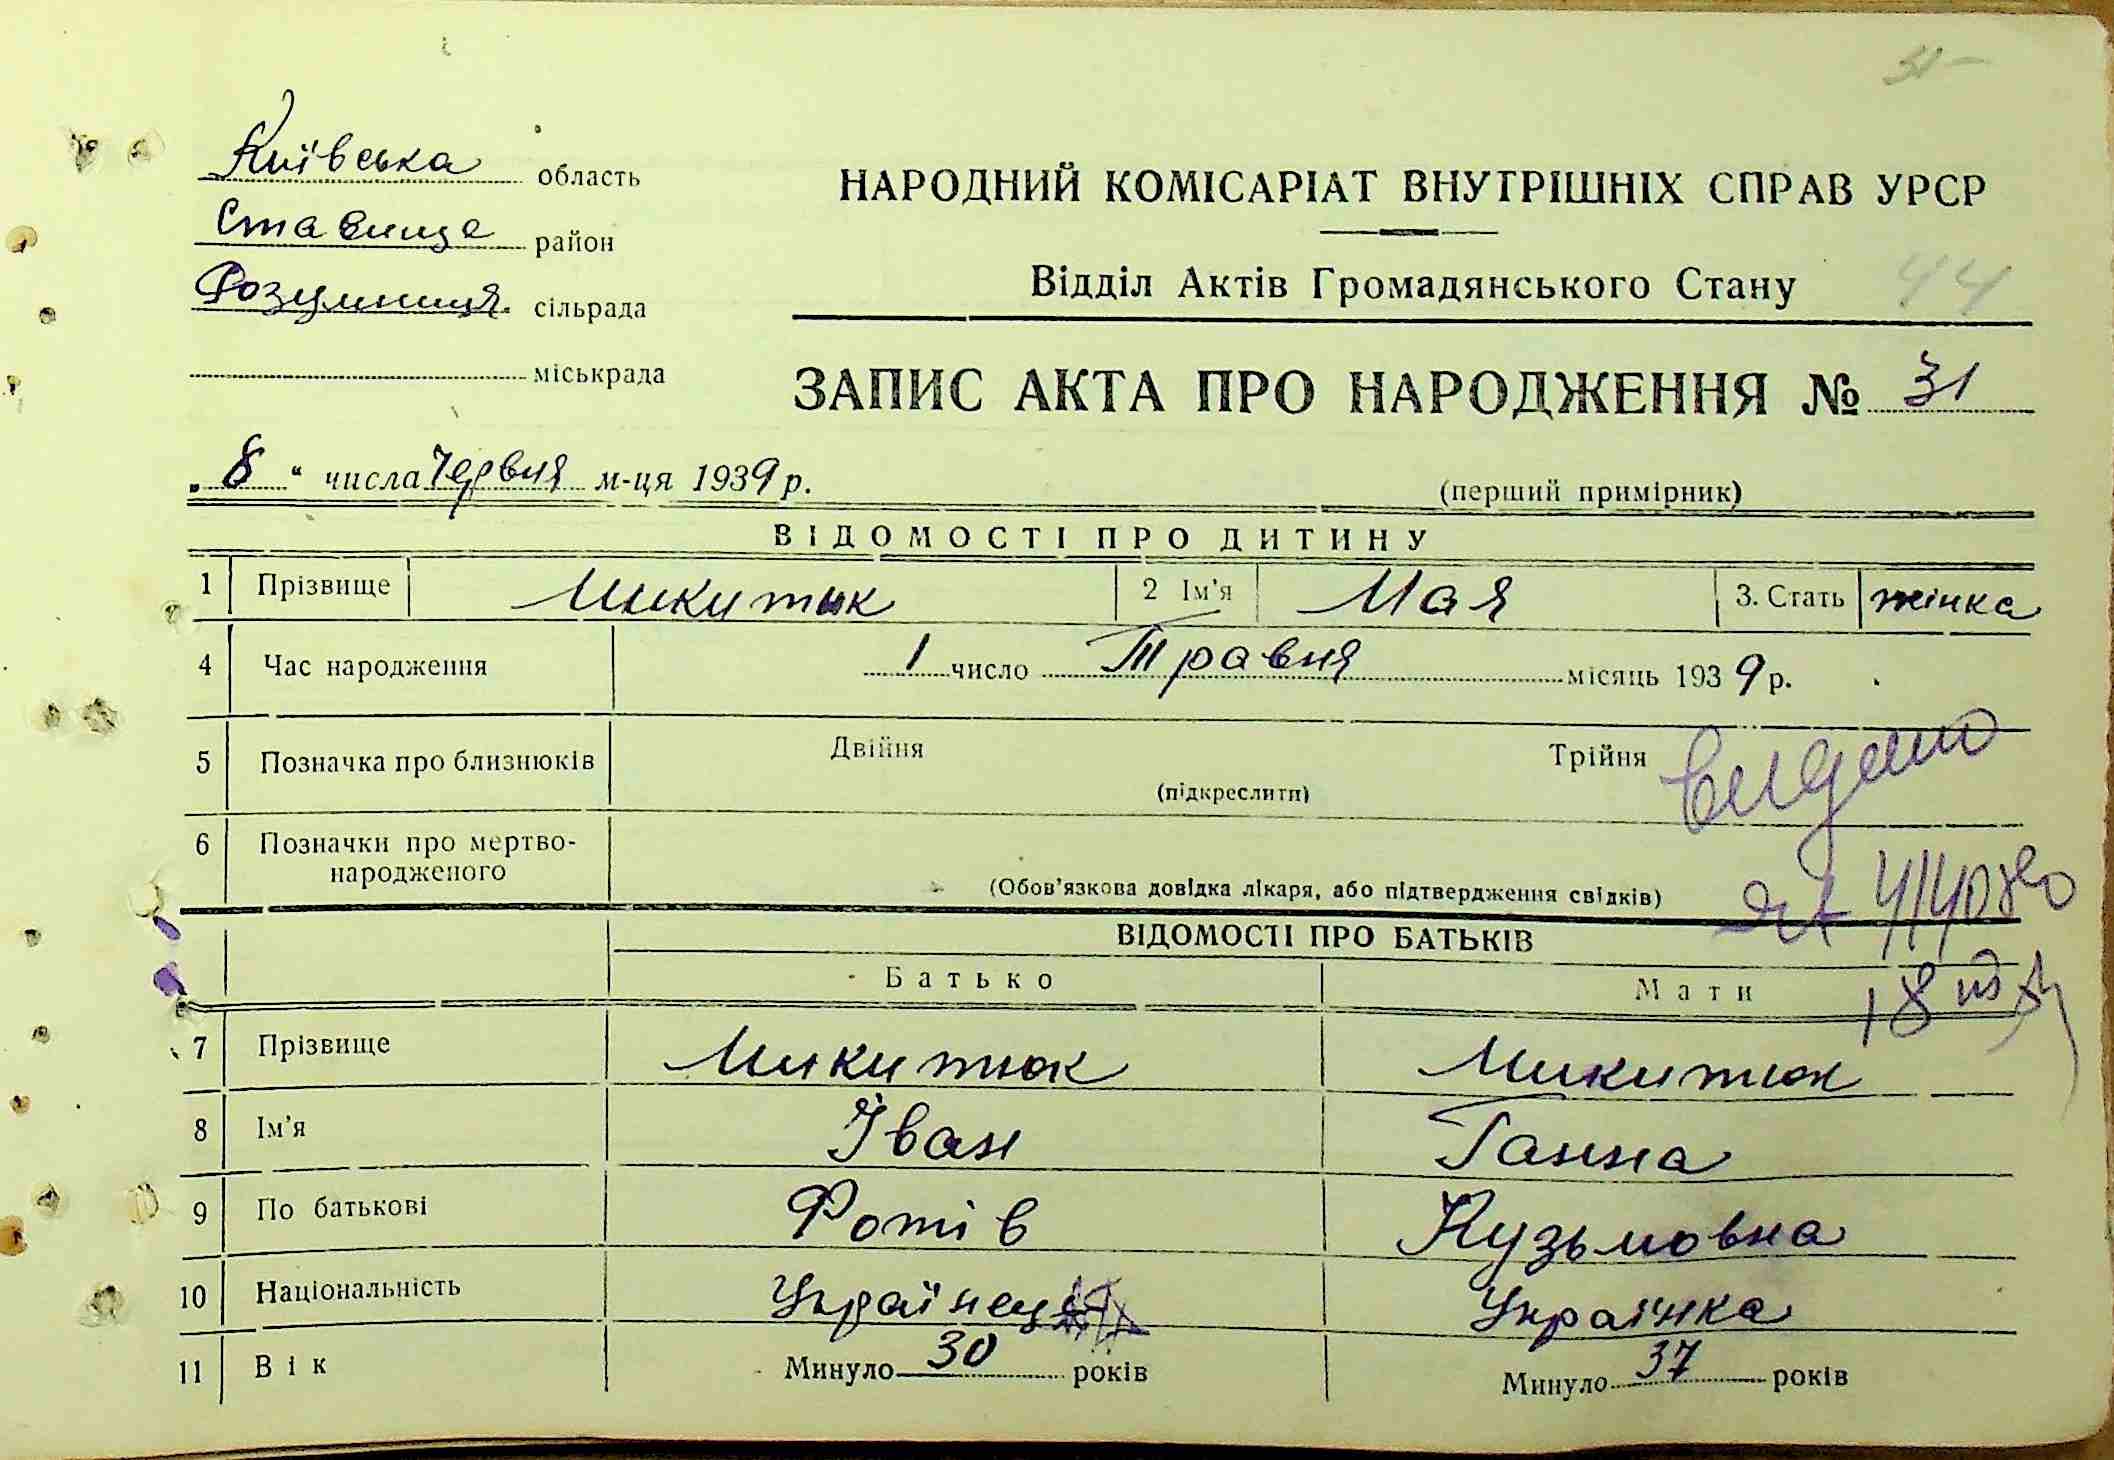 31
Київська область
Ставище район
Розумниця сільрада
міськрада
НАРОДНИЙ КОМІСАРІАТ ВНУТРІШНІХ СПРАВ УРСР
Відділ Актів Громадянського Стану 44
ЗАПИС АКТА ПРО НАРОДЖЕННЯ № 31
„8“ числа Червня м-ця 1939 р.
(перший примірник)
ВІДОМОСТІ ПРО ДИТИНУ
1 Прізвище Микитюк 2 Ім'я Мая 3. Стать жінка
4 Час народження 1 число Травня місяць 1939 р.
5 Позначка про близнюків Двійня Трійня
(підкреслити)
видано
6 Позначки про мертво-
народженого
(Обов'язкова довідка лікаря, або підтвердження свідків)
ВІДОМОСТІ ПРО БАТЬКІВ
Батько Мати
18
7 Прізвище Микитюк Микитюк
8 Ім'я Іван Ганна
9 По батькові Фотів Кузьмовна
10 Національність Українец Українка
11 Вік Минуло 30 років Минуло 37 років